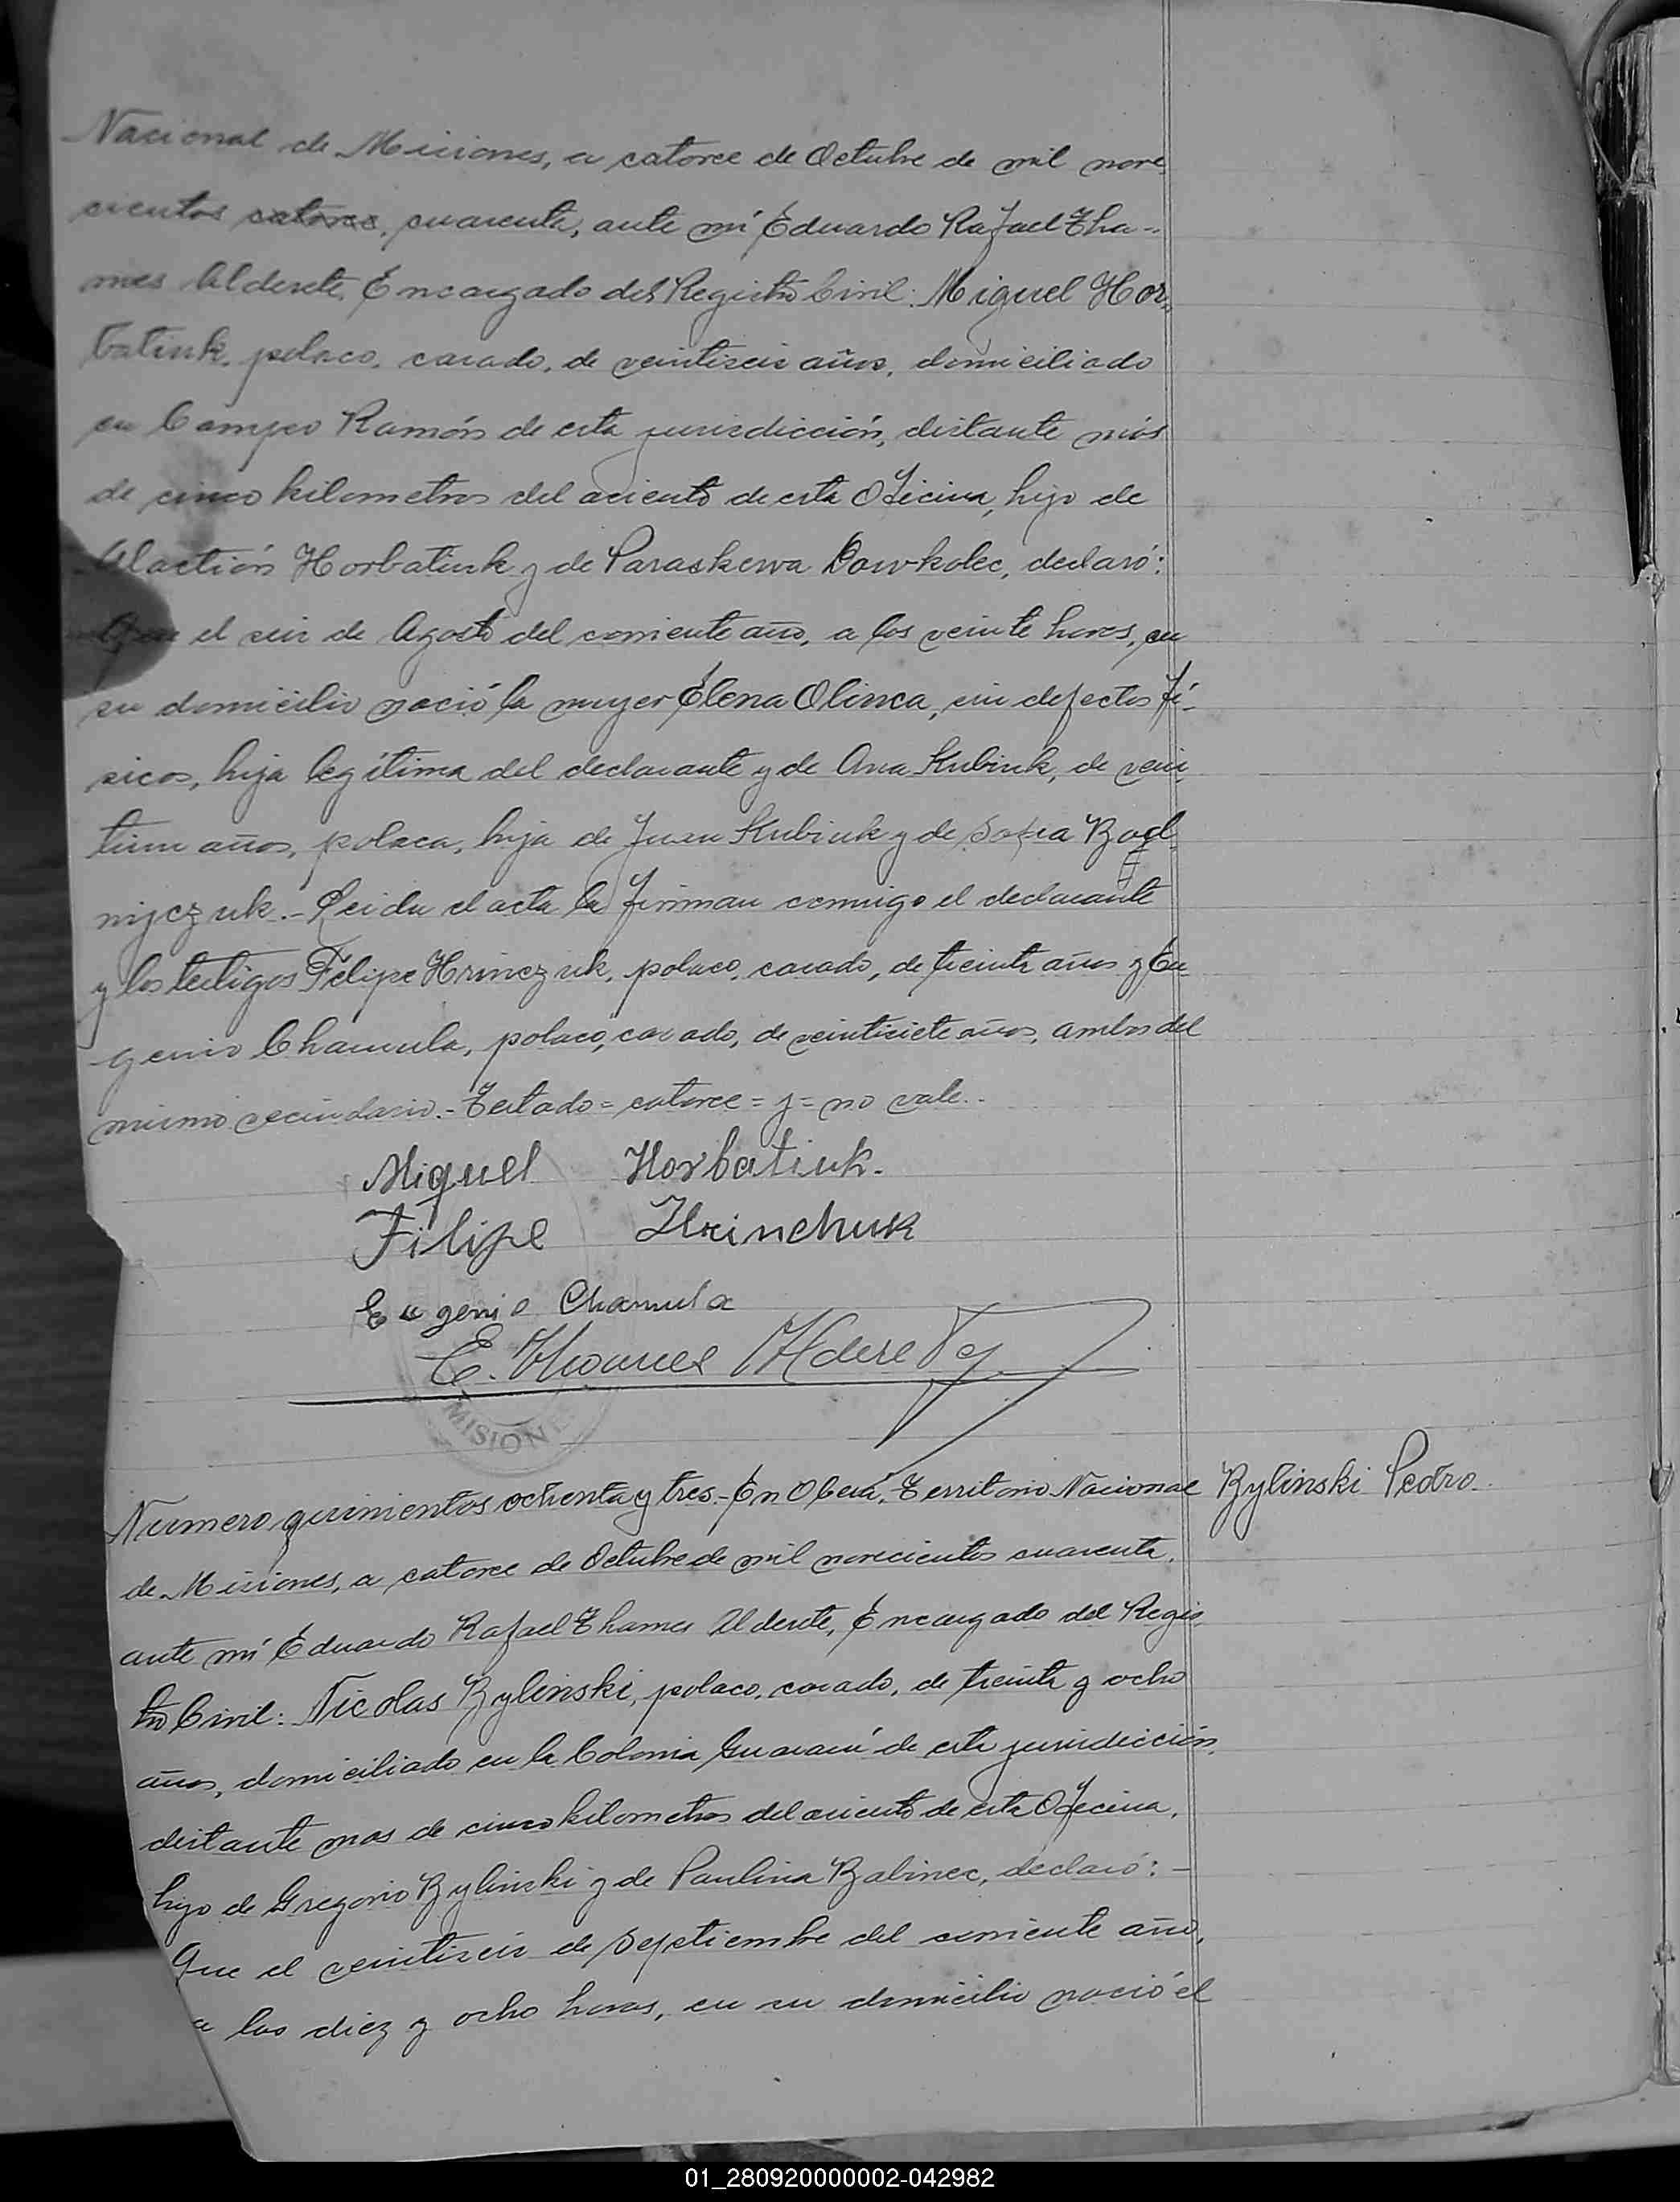 Nacional de Misiones, a catorce de Octubre de mil nove
cientos catorce, cuarenta, ante mí Eduardo Rafael Tha-
mes Alderete, Encargado del Registro Civil: Miguel Hor-
batiuk, polaco, casado, de veintiseis años, domiciliado
en Campo Ramón de esta jurisdicción, distante más
de cinco kilometros del asiento de esta Oficina, hijo de
Horbatiuk y de Paraskewa declaró:
Que el seis de Agosto del corriente año, a las veinte horas, en
su domicilio nació la mujer Elena Olinca, sin defectos fí-
sicos, hija legítima del declarante y de Ana Kubiuk, de vein
tiun años, polaca, hija de Juan Kubiuk y de Sofia Bod-
nyczuk.- Leida el acta la firman conmigo el declarante
y los testigos Felipe Hrinczuk, polaco, casado, de treinta años y Eu
genio Chamula, polaco, casado, de veintisiete años, ambos del
mismo vecindario.- Testado = catorce = y = no vale.-
Miguel Horbatiuk.
Filipe Hrinchuk
Eugenio Chamula
E. Thames Alderete
MISIONE
Numero quinientos ochenta y tres.- En Oberá, Territorio Nacional Bylinski Pedro.
de Misiones, a catorce de Octubre de mil novecientos cuarenta,
ante mí Eduardo Rafael Thames Alderete, Encargado del Regis
tro Civil: Nicolas Bylinski, polaco, casado, de treinta y ocho
años, domiciliado en la Colonia Guaraní de esta jurisdicción,
distante mas de cinco kilometros del asiento de esta Oficina,
hijo de Gregorio Bylinski y de Paulina Babinec, declaró:-
Que el veintiseis de Septiembre del corriente año,
a las diez y ocho horas, en su domicilio nació el
01_280920000002-042982